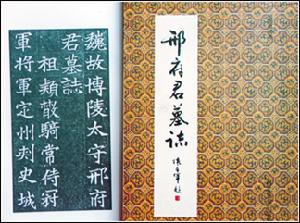 魏故博陵太守邢府
君墓誌
祖穎散騎常侍冠
軍將軍定州刺史城
邢府君墓誌